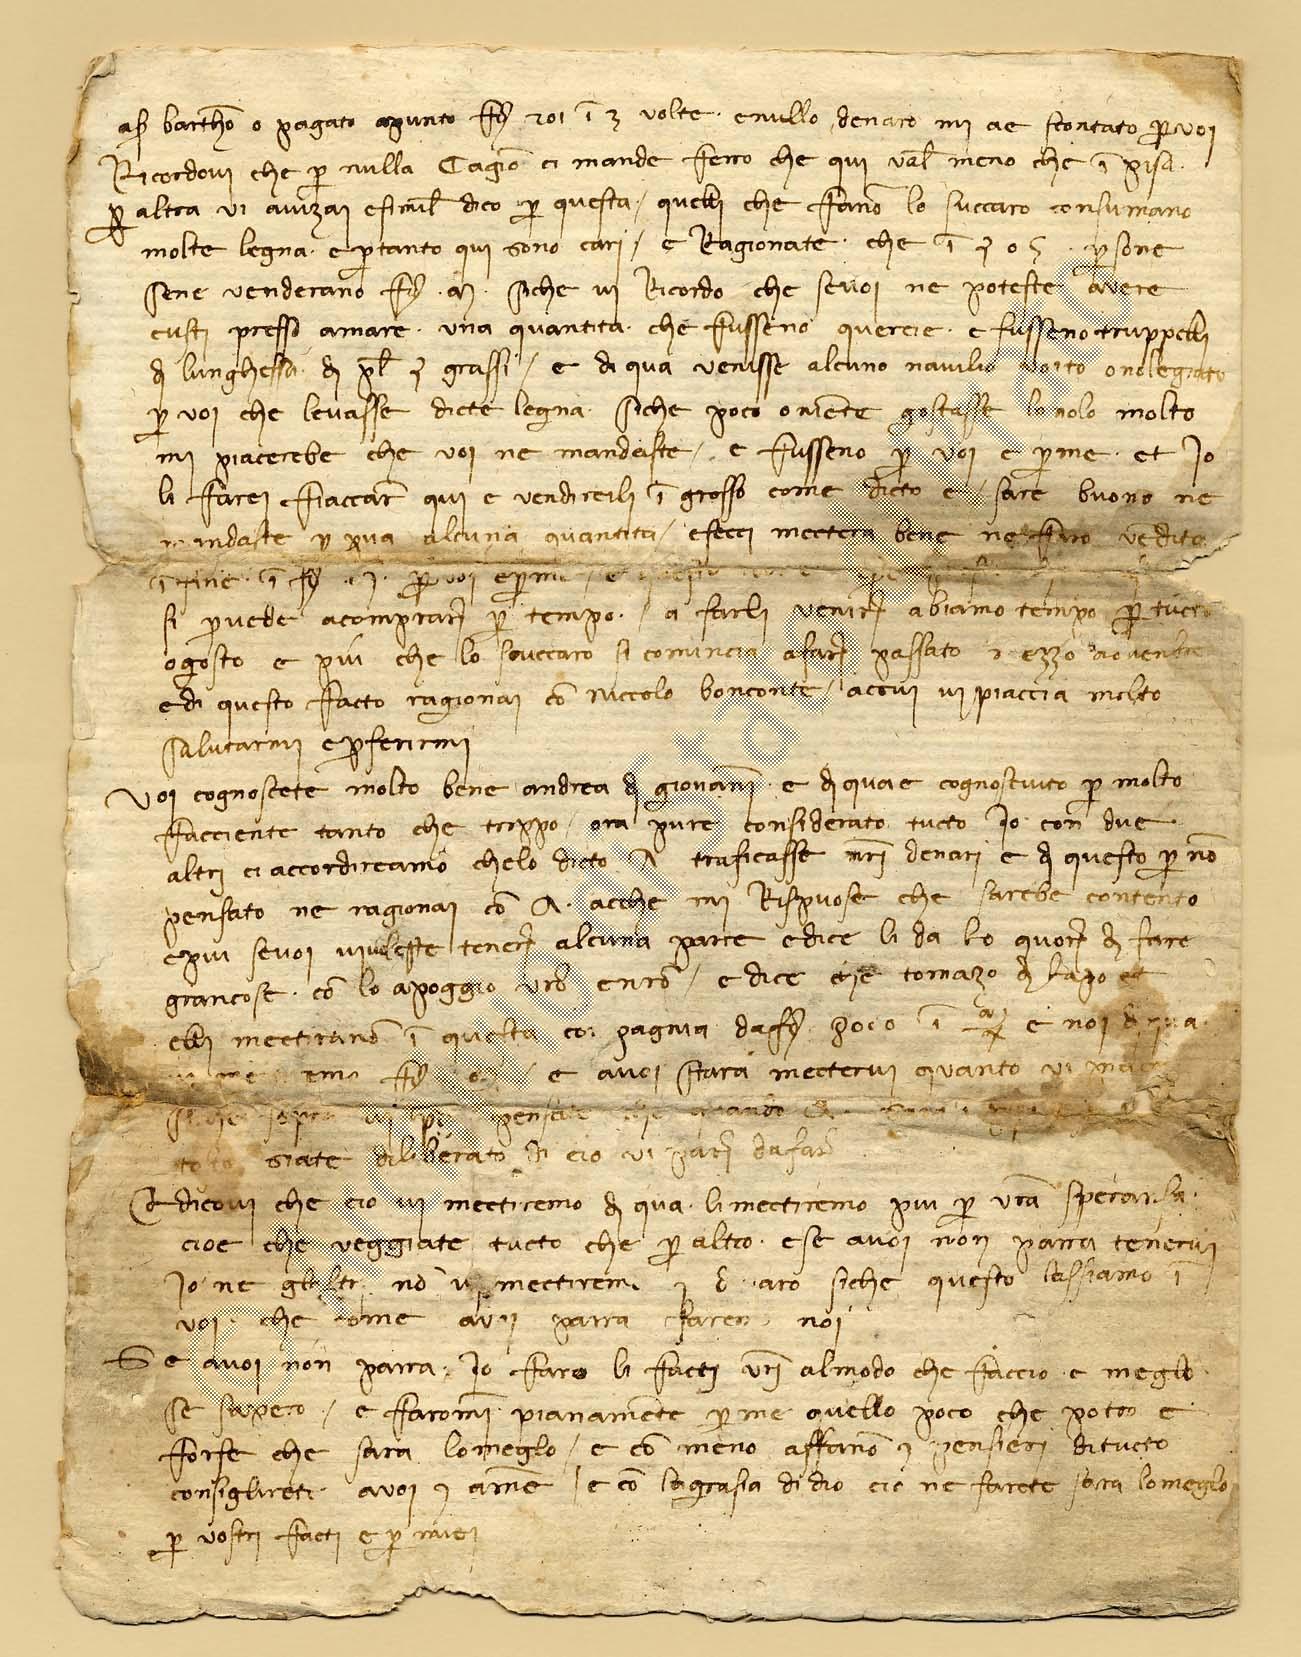 a ser barthõ o pagato apunto ff. 201 ĩ 3 volte · e nullo denaro mi ae scontato p voi
Ricordovi che p nulla Cagiõ ci mande ferro che qui val meno che ĩ pisa ·
p altra vi avizai e simil dico p questa / quelli che fanõ lo succaro consumano
molte legna · e ptanto qui sono cari / e Ragionate · che ĩ psone
sene venderano ff. siche vi Ricordo che sevoi ne poteste avere
custi presso amare · una quantita · che fusseno quercie · e fusseno truppelli
di lunghessa · di grassi / e di qua venisse alcuno navilio voito o nolegiato
p voi che levasse dicte legna · siche poco o niente gostasse lo nolo molto
mi piacerebe che voi ne mandaste / e fusseno p voi e p me · et Io
li farei fiaccare qui e vendireili ĩ grosso come dicto e / sare buono ne
mandaste p pva alcuna quantita / e secci mectera bene ne faro vẽdita
ĩ fine · ĩ ff. p voi e p me /
si pvede acomprare p tempo · / a farli venire abiamo tempo p tucto
ogosto e piu che lo succaro si comincia afare passato mezzo novembre
e di questo facto ragionai cõ niccolo bonconte / accui vi piaccia molto
salutarmi e pferirmi
Voi cognoscete molto bene andrea di giovani · e di qua e cognosciuto p molto
facciente tanto che troppo / ora pure considerato tucto Io con due
altri ci accordireamo che lo dicto A traficasse nri denari e di questo p nõ
pensato ne ragionai cõ A · acche mi Rispuose che sarebe contento
e piu sevoi vi voleste tenere alcuna parte e dice li da lo quore di fare
grancose · cõ lo apoggio vro e nro / e dice che tomazo di lapo et
elli mectiranõ ĩ questa compagnia da ff. ĩ e noi di qua
ff. / e avoi stara mectervi quanto vi piace
siche sopra pensate che quando A.
siate diliberato di cio vi pare dafare
Et dicovi che cio vi mectiremo di qua · li mectiremo piu p vra speransa ·
cioe che veggiate tucto che p altro · e se avoi non parra tenervi
Io ne gli altri nõ vi mectiremo denaro siche questo lassiamo ĩ
voi · che come avoi parra faremo noi
Se avoi non parra · Io faro li facti vri almodo che faccio e meglo
se sapero / e faromi pianamẽte p me quello poco che potro e
forse che sara lo meglo / e cõ meno affanõ e pensieri di tucto
consiglirete avoi e ame / e cõ la grasia di dio cio ne farete sara lo meglo
p vostri facti e p miei